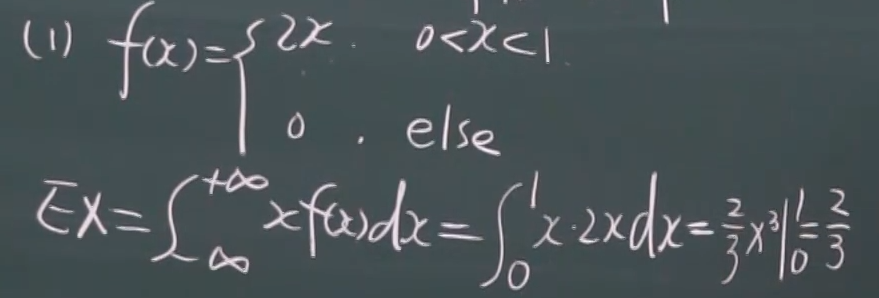 (1) f(x)={2x. 0<x<1.
0. else
EX=∫_{-∞}^{+∞} xf(x)dx=∫_0^1 x·2xdx=2/3 x³|_0^1=2/3